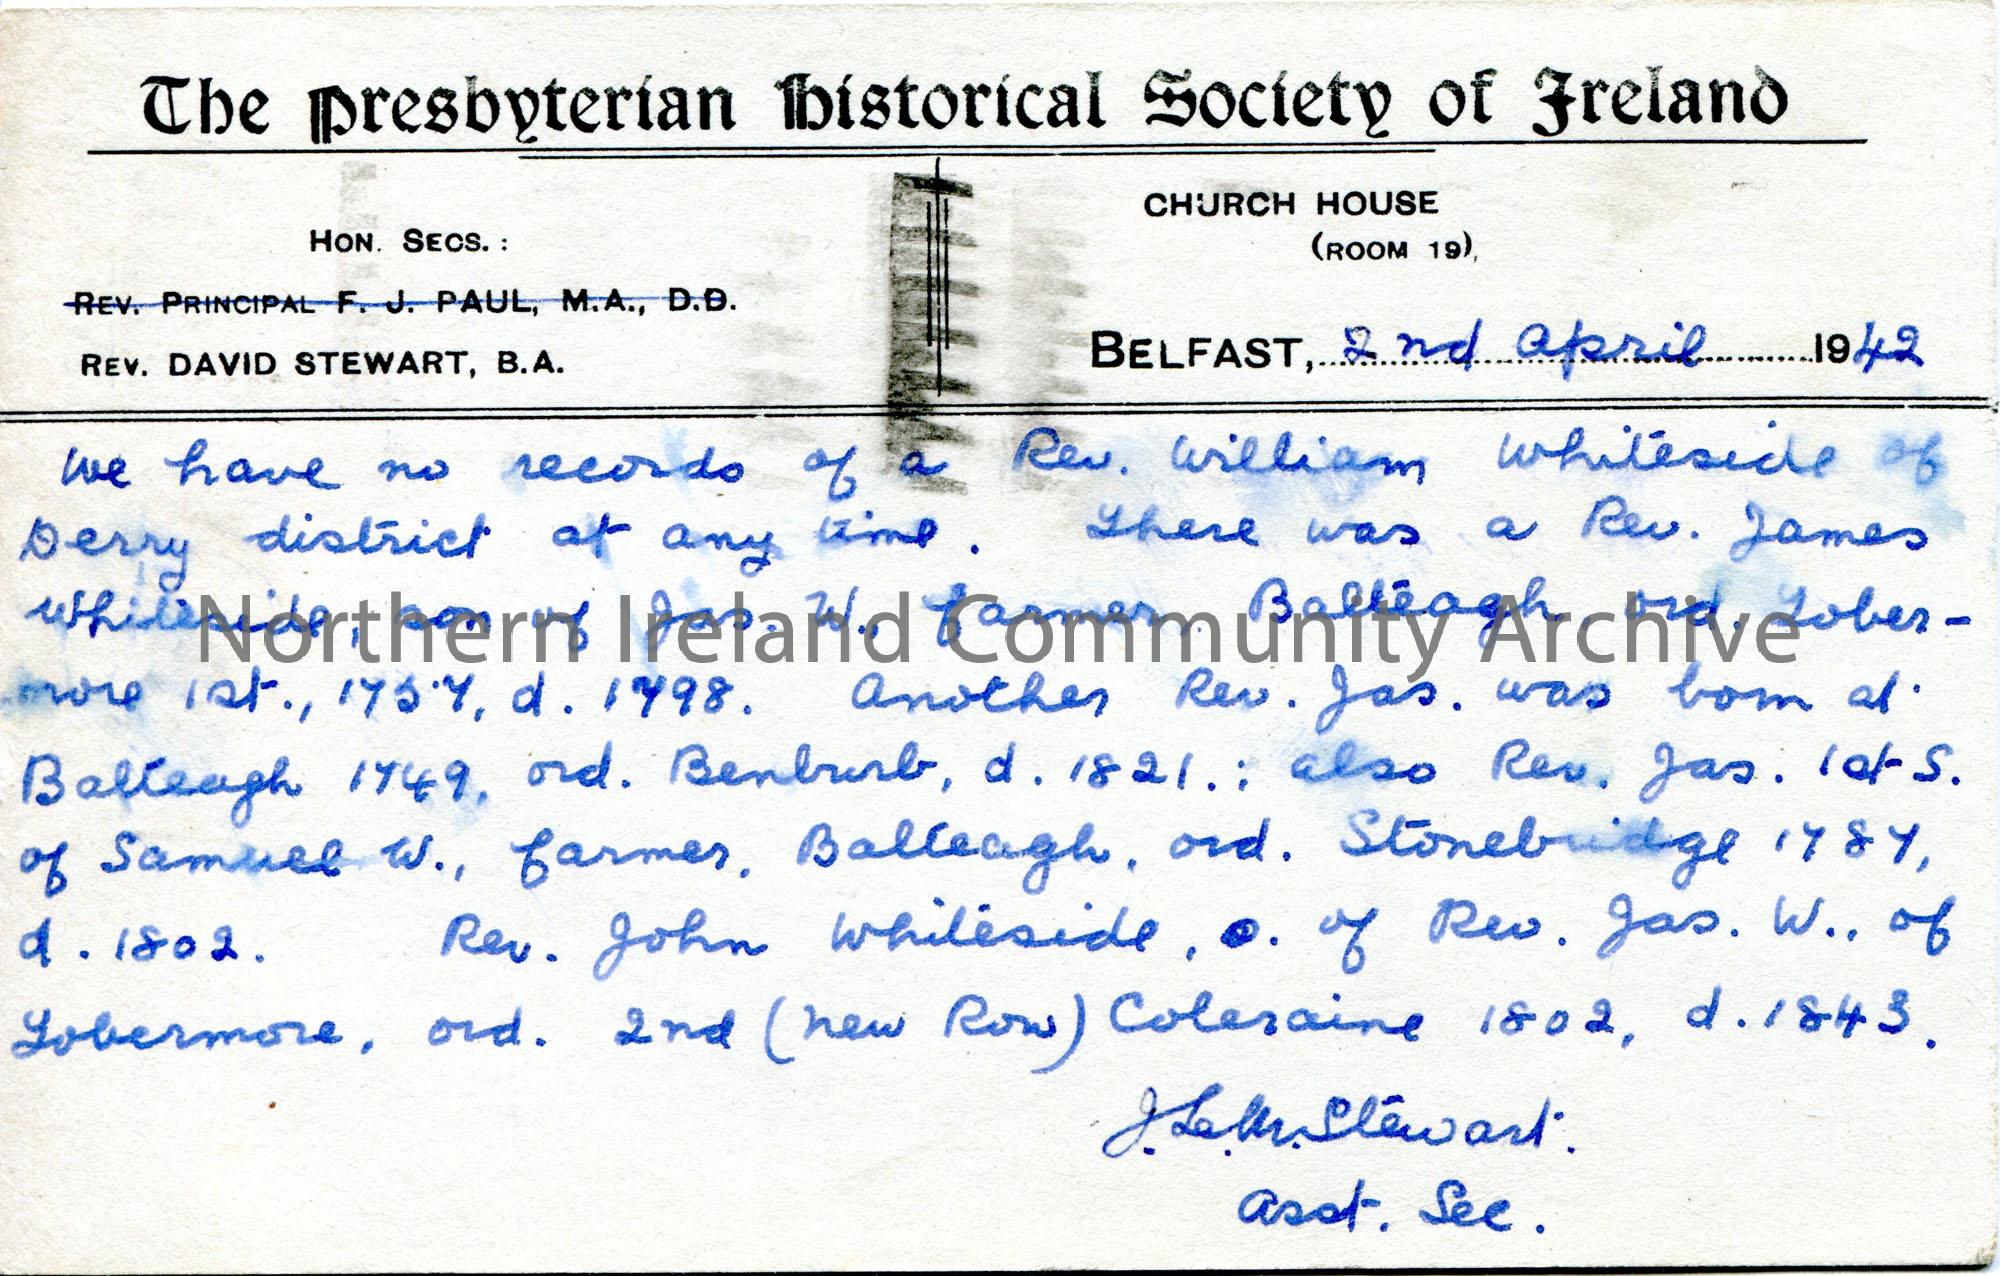 The Presbyterian Historical Society of Ireland
HON. SECS.:
REV. PRINCIPAL F. J. PAUL, M.A., D.D.
REV. DAVID STEWART, B.A.
CHURCH HOUSE
(ROOM 19),
BELFAST, 2nd April 1942
We have no records of a Rev. William Whiteside of
Derry district at any time. There was a Rev. James
Whiteside, son of Jas. W., farmer, Balteagh, ord. Tober-
more 1st., 1757, d. 1798. Another Rev. Jas. was born at
Balteagh 1749, ord. Benburb, d. 1821.; also Rev. Jas. 1st S.
of Samuel W., farmer, Balteagh, ord. Stonebridge 1787,
d. 1802. Rev. John Whiteside, s. of Rev. Jas. W., of
Tobermore, ord. 2nd (New Row) Coleraine 1802, d. 1843.
Stewart.
Asst. Sec.
Northern Ireland Community Archive